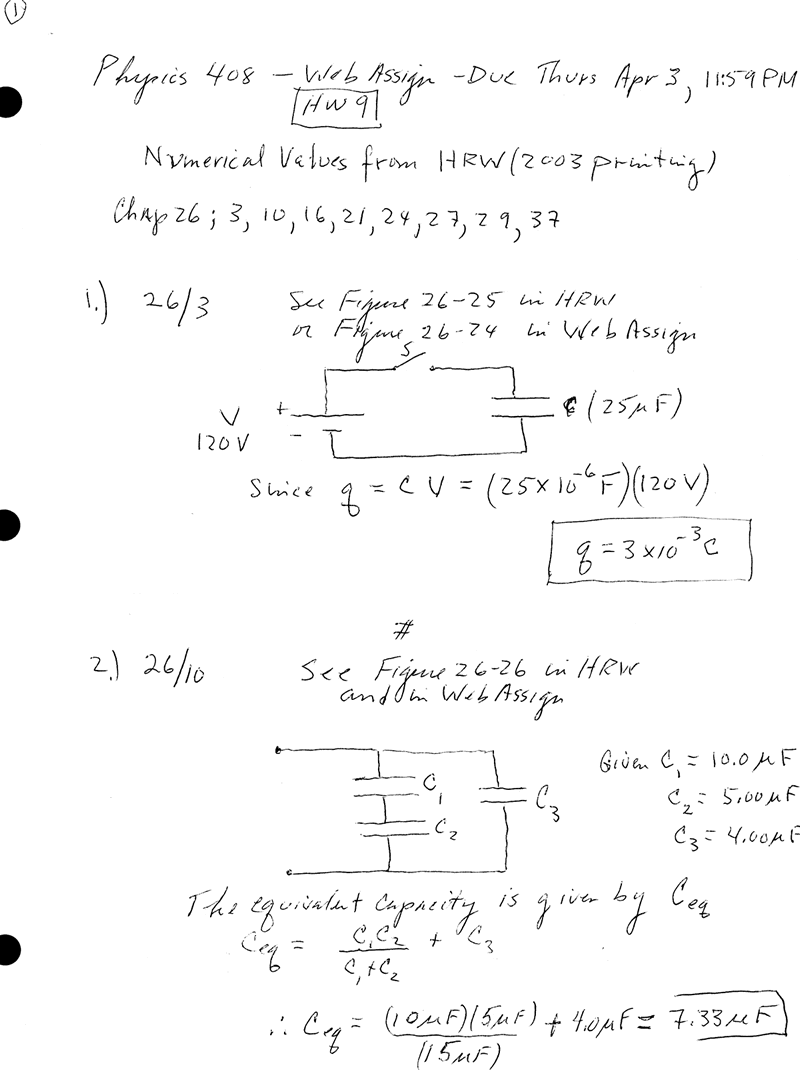 1
Physics 408 – Web Assign – Due Thurs Apr 3, 11:59 PM
HW 9
Numerical Values from HRW (2003 printing)
Chap 26; 3, 10, 16, 21, 24, 27, 29, 37
1.) 26/3 See Figure 26-25 in HRW
or Figure 26-24 in Web Assign
S
V + C (25 μF)
120 V -
Since q = C V = (25 x 10⁻⁶ F)(120 V)
q = 3 x 10⁻³ C
#
2.) 26/10 See Figure 26-26 in HRW
and in Web Assign
Given C₁ = 10.0 μF
C₁ C₃ C₂ = 5.00 μF
C₂ C₃ = 4.00 μF
The equivalent capacity is given by Ceq
Ceq = C₁C₂ / (C₁ + C₂) + C₃
∴ Ceq = (10 μF)(5 μF) / (15 μF) + 4.0 μF = 7.33 μF